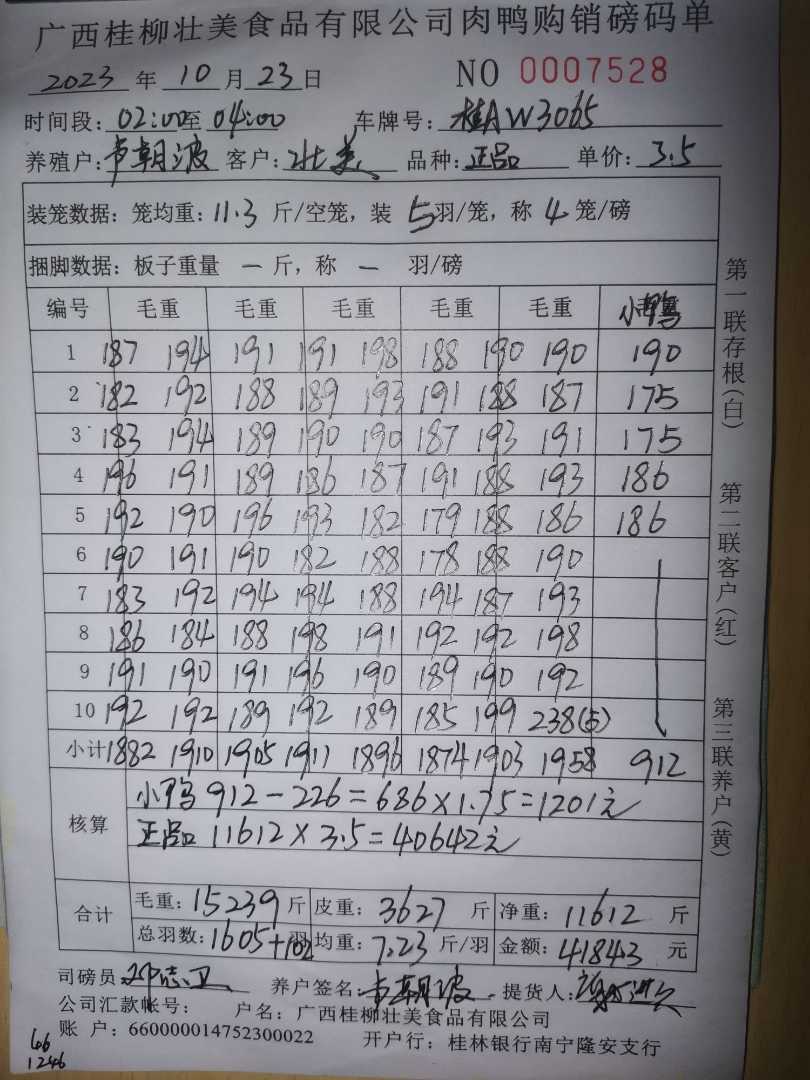 广西桂柳壮美食品有限公司肉鸭购销磅码单
2023 年 10 月 23 日 NO 0007528
时间段: 02:00 至 04:00 车牌号: 桂AW3065
养殖户: 韦朝波 客户: 壮美 品种: 正品 单价: 3.5
装笼数据: 笼均重: 11.3 斤/空笼, 装 5 羽/笼, 称 4 笼/磅
捆脚数据: 板子重量 一 斤, 称 一 羽/磅
编号 毛重 毛重 毛重 毛重 毛重 小鸭
1 187 194 191 191 198 188 190 190 190
2 182 192 188 189 193 191 188 187 175
3 183 194 189 190 190 187 193 191 175
4 196 191 189 186 187 191 188 193 186
5 192 190 196 193 182 179 188 186 186
6 190 191 190 182 188 178 188 190
7 183 192 194 194 188 194 187 193
8 186 184 188 198 191 192 192 198
9 191 190 191 196 190 189 190 192
10 192 192 189 192 189 185 199 238(5)
小计 1882 1910 1905 1911 1896 1874 1903 1958 912
核算
小鸭 912-226=686×1.75=1201元
正品 11612×3.5=40642元
合计
毛重: 15239 斤 皮重: 3627 斤 净重: 11612 斤
总羽数: 1605+102 羽 均重: 7.23 斤/羽 金额: 41843 元
司磅员 邓志卫 养户签名: 韦朝波 提货人:
公司汇款帐号: 户名: 广西桂柳壮美食品有限公司
账 户: 660000014752300022 开户行: 桂林银行南宁隆安支行
1246
第一联存根(白)
第二联客户(红)
第三联养户(黄)